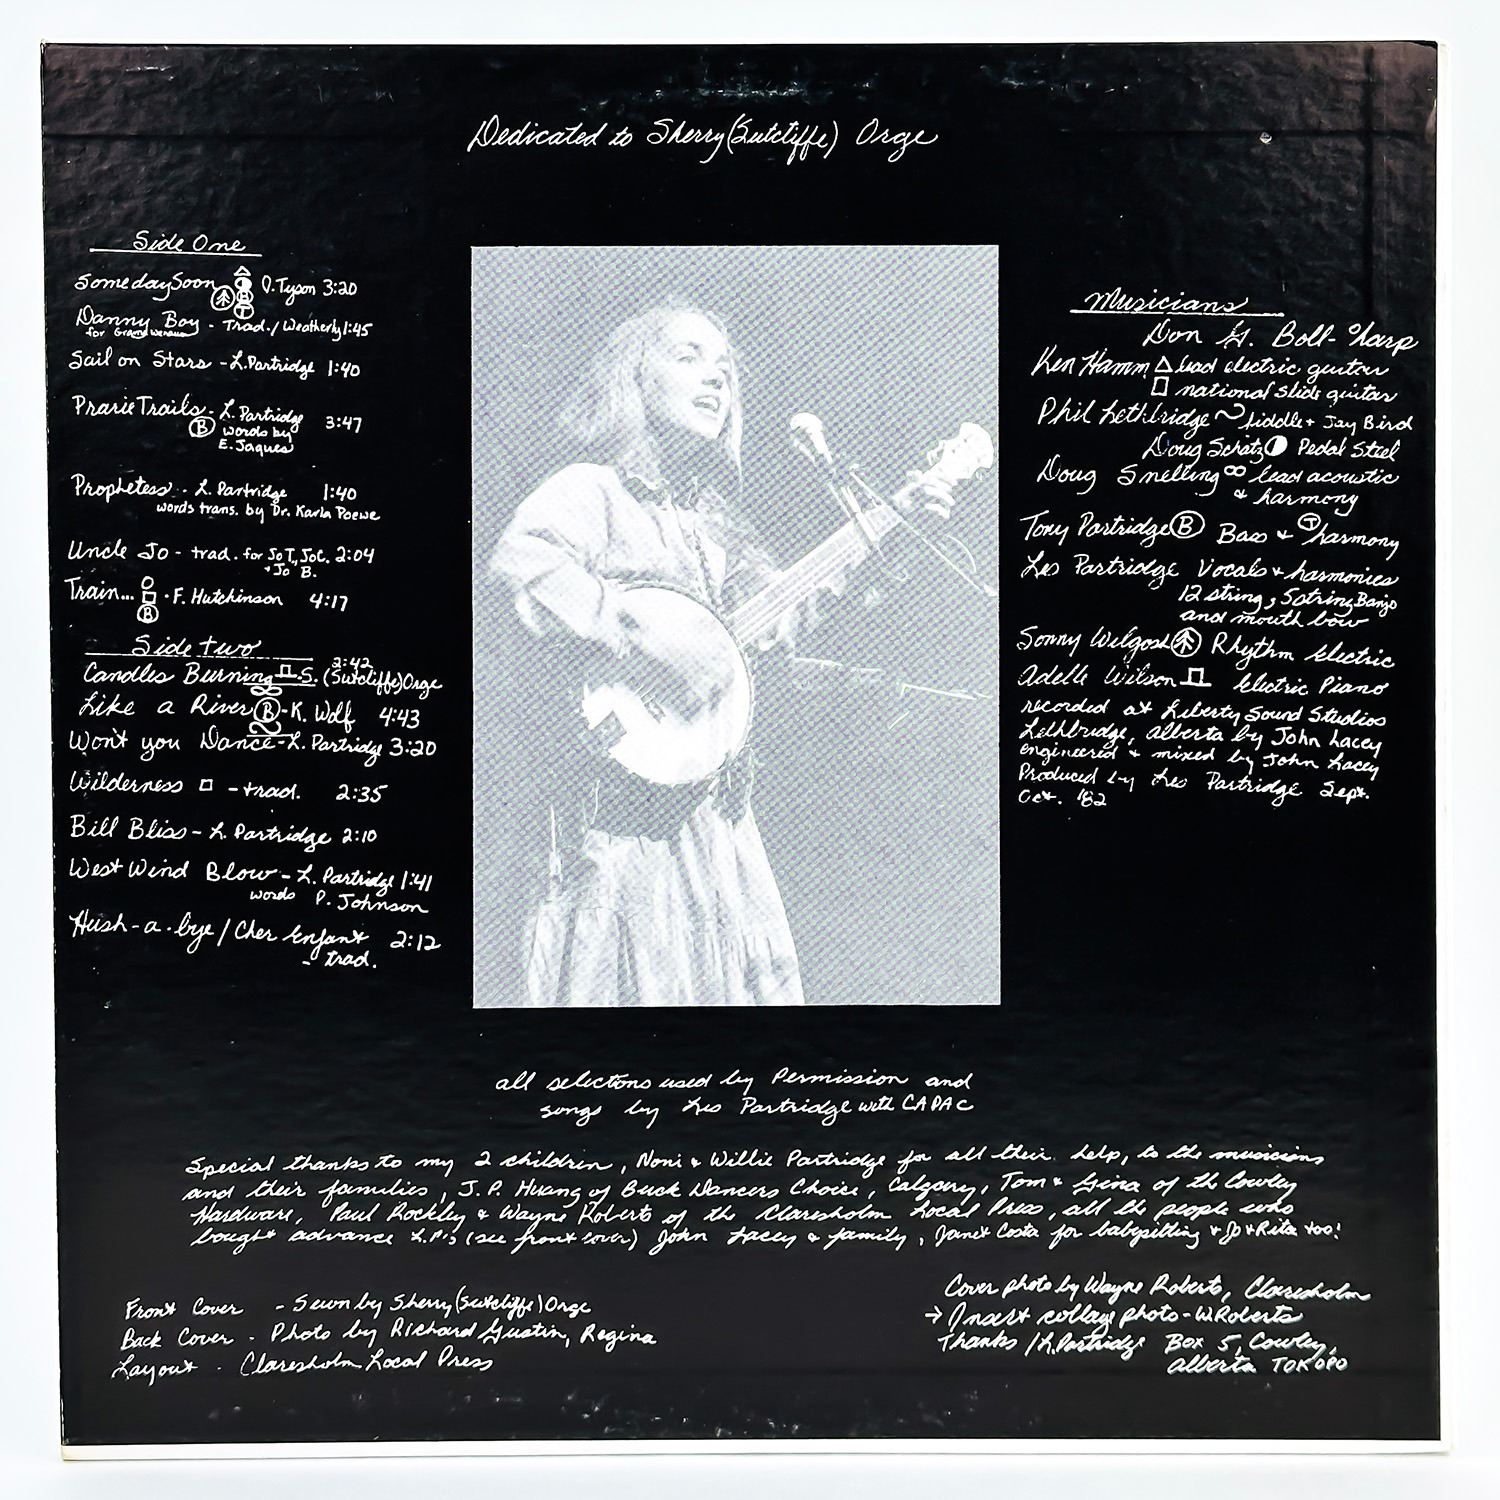 Dedicated to Sherry (Sutcliffe) Orge
Side One
Someday Soon T I. Tyson 3:20
Danny Boy - Trad./Weatherly 1:45
for
Sail on Stars - L. Partridge 1:40
Prarie Trails - L. Partridge 3:47
B words by
E. Jaques
Prophetess - L. Partridge 1:40
words trans. by Dr. Karla Poewe
Uncle Jo - trad. for Jo T, Jo C. 2:04
+ Jo B.
Train... - F. Hutchinson 4:17
B
Side two
Candles Burning - S. (Sutcliffe) Orge 2:42
Like a River B - K. Wolf 4:43
Won't you Dance - L. Partridge 3:20
Wilderness - trad. 2:35
Bill Bliss - L. Partridge 2:10
West Wind Blow - L. Partridge 1:41
words P. Johnson
Hush-a-bye / Cher Enfant 2:12
- trad.
Musicians
Don G. Boll - harp
Ken Hamm lead electric guitar
national slide guitar
Phil Lethbridge fiddle + Jay Bird
Doug Schatz Pedal Steel
Doug Snelling lead acoustic
& harmony
Tony Partridge B Bass + T harmony
Les Partridge Vocals + harmonies
12 string, 5 string Banjo
and mouth bow
Sonny Wilgosh Rhythm Electric
Adelle Wilson Electric Piano
recorded at Liberty Sound Studios
Lethbridge, alberta by John Lacey
engineered & mixed by John Lacey
Produced by Les Partridge Sept.
Oct. '82
all selectons used by Permission and
songs by Les Partridge with CAPAC
Special thanks to my 2 children, Noni & Willie Partridge for all their help, to the musicians
and their families, J.P. Huang of Buck Dancers Choice, Calgary, Tom & Gina of the Cowley
Hardware, Paul Rockley & Wayne Roberts of the Claresholm Local Press, all the people who
bought advance L.P.'s (see front cover) John Lacey & family, Janet Costa for babysitting & Jo + Rita too!
Front Cover - Sewn by Sherry (Sutcliffe) Orge
Back Cover - Photo by Richard Gustin, Regina
Layout - Claresholm Local Press
Cover photo by Wayne Roberts, Claresholm
→ Insert collage photo - W. Roberts
Thanks / L. Partridge Box 5, Cowley,
alberta T0K 0P0